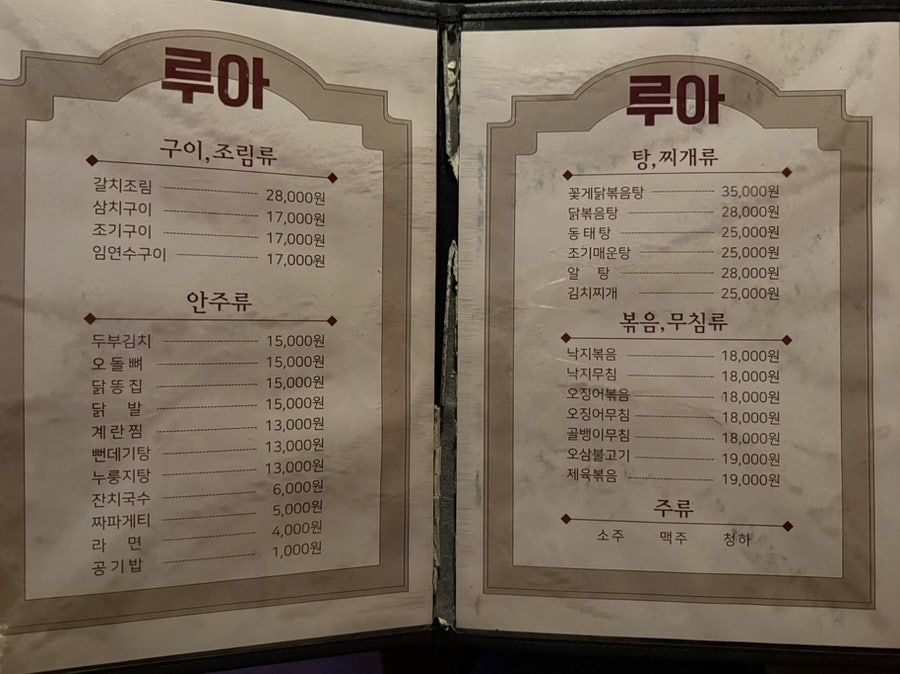 루아
구이,조림류
갈치조림 28,000원
삼치구이 17,000원
조기구이 17,000원
임연수구이 17,000원
안주류
두부김치 15,000원
오돌뼈 15,000원
닭똥집 15,000원
닭 발 15,000원
계란찜 13,000원
뻔데기탕 13,000원
누룽지탕 13,000원
잔치국수 6,000원
짜파게티 5,000원
라 면 4,000원
공기밥 1,000원
루아
탕,찌개류
꽃게닭볶음탕 35,000원
닭볶음탕 28,000원
동태탕 25,000원
조기매운탕 25,000원
알 탕 28,000원
김치찌개 25,000원
볶음,무침류
낙지볶음 18,000원
낙지무침 18,000원
오징어볶음 18,000원
오징어무침 18,000원
골뱅이무침 18,000원
오삼불고기 19,000원
제육볶음 19,000원
주류
소주 맥주 청하